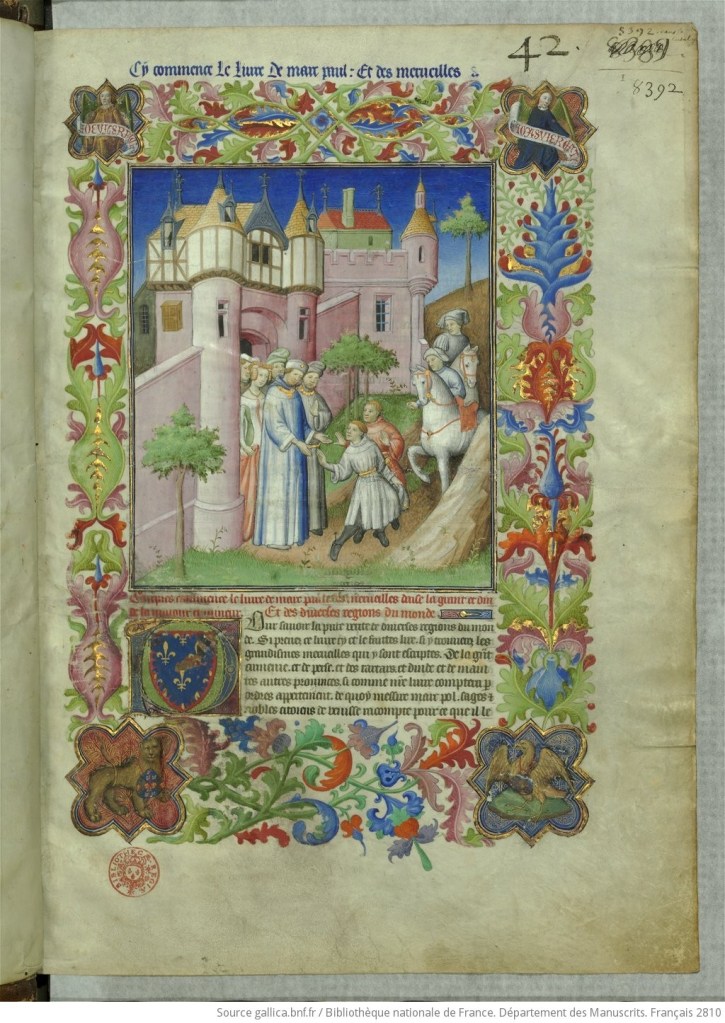 Cy commence le liure De marc paul : Et des merueilles
42.
8392
8392
Cy apres commence le liure de marc paul des merueilles daise la grant et din
de la maiour et mineur. Et des diuerses regions du monde.
Pour sauoir la pure verite de diuerses regions du mon
de. Si prenez ce liure cy et le faites lire. si y trouuerez les
grandismes merueilles qui y sont escriptes. De la grãt
ermenie. et de perse. et des tartars et dinde. et de maint
es autres prouinces. si comme nr̃e liure comptera p
ordres appertement. de quoy messire marc pol. sages et
nobles citoiens de venisse racompte pour ce que il le
BIBLIOTHECAE REGIAE
Source gallica.bnf.fr / Bibliothèque nationale de France. Département des Manuscrits. Français 2810